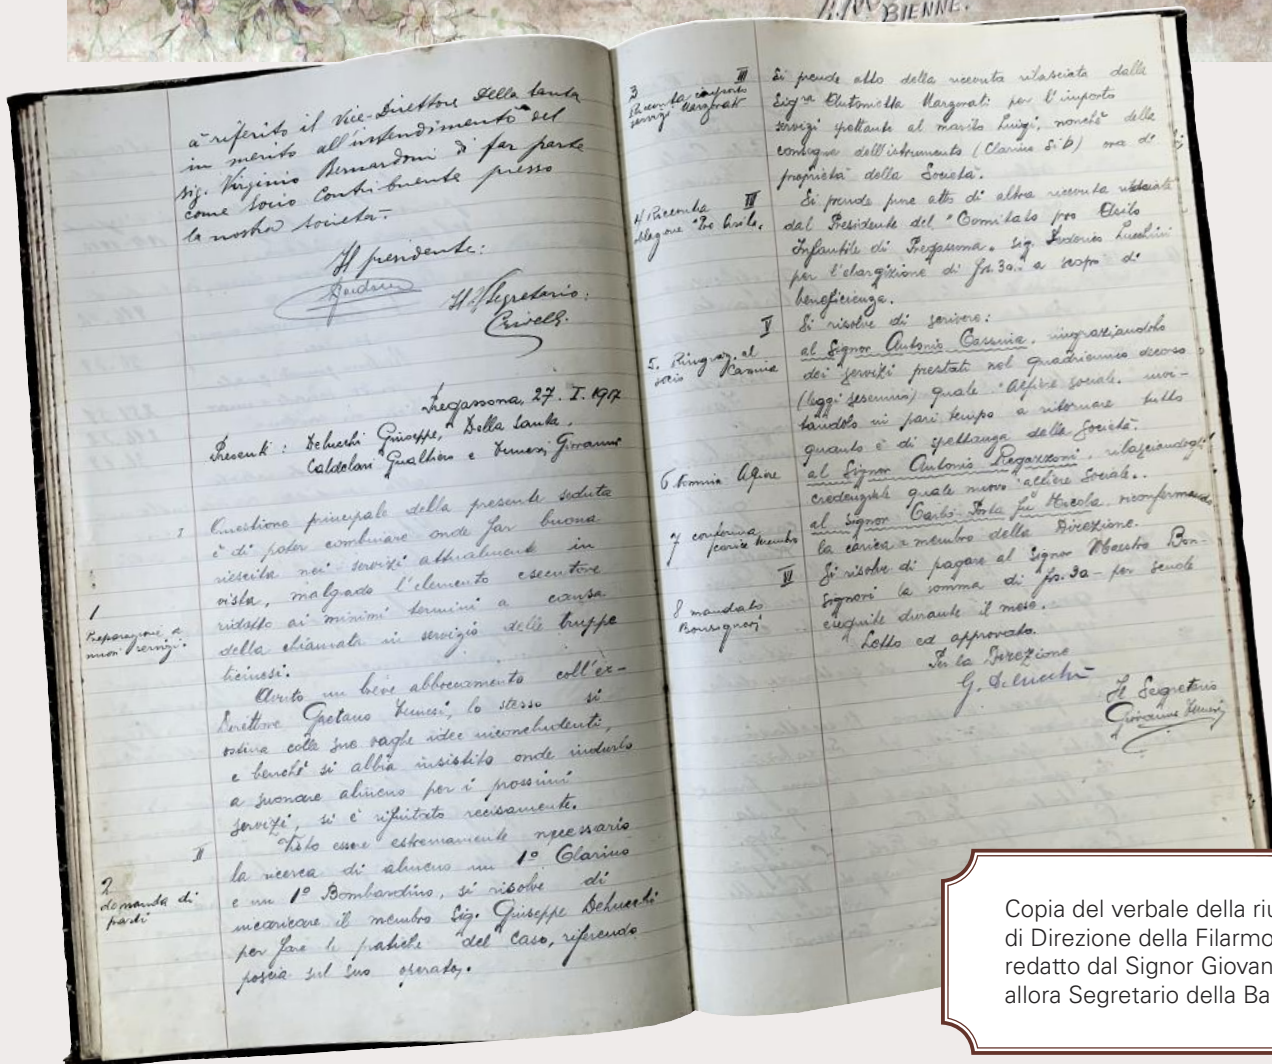 BIENNE.
a riferito il Vice-Direttore Della Santa
in merito all'intendimento del
sig. Virginio Bernardoni di far parte
come socio Contribuente presso
la nostra società.
Il presidente:
Il Segretario:
Crivelli.
Pregassona, 27. I. 1917
Presenti: Delucchi Giuseppe, Della Santa,
Caldelari Gualtiero e Giovanni
I
1
Preparazione a
nuovi servizi.
Questione principale della presente seduta
è di poter combinare onde far buona
riescita nei servizi attualmente in
vista, malgado l'elemento esecutore
ridotto ai minimi termini a causa
della chiamata in servizio delle truppe
ticinesi.
Avuto un breve abboccamento coll'ex-
Direttore Gaetano lo stesso si
ostina colle sue vaghe idee inconcludenti,
e benchè si abbia insistito onde indurlo
a suonare almeno per i prossimi
servizi, si è rifiutato recisamente.
II
2
domanda di
parti
Visto essere estremamente necessario
la ricerca di almeno un 1º Clarino
e un 1º Bombardino, si risolve di
incaricare il membro Sig. Giuseppe Delucchi
per fare le pratiche del caso, riferendo
poscia sul suo operato.
3
III
Ricevuta importo
servizi Margorati
Si prende atto della ricevuta rilasciata dalla
Sigra Antonietta Margorati per l'importo
servizi spettante al marito Luigi, nonchè della
consegna dell'istrumento (Clarino Si b) ora di
proprietà della Società.
4 Ricevuta
IV
oblazione "Pro Asilo.
Si prende pure atto di altra ricevuta rilasciata
dal Presidente del "Comitato pro Asilo
Infantile di Pregassona. sig. Federico Lucchini
per l'elargizione di frs. 30.- a scopo di
beneficienza.
V
Si risolve di scrivere:
5. Ringraz. al
socio Cassina
al Signor Antonio Cassina. ringraziandolo
dei servizi prestati nel quadriennio decorso
(leggi sesennio) quale Alfiere sociale. invi-
tandolo in pari tempo a ritornare tutto
quanto è di spettanza della Società.
6 nomina Alfiere
al Signor Antonio Regazzoni. rilasciandogli
credenziale quale nuovo alfiere Sociale.
7 conferma
carica membro
al Signor Carlo Porta fu Nicola. riconfermando
la carica a membro della Direzione.
VI
8 mandato
Bonsignori
Si risolve di pagare al Signor Maestro Bon-
signori la somma di frs. 30 - per scuole
eseguite durante il mese.
Letto ed approvato.
Per la Direzione
G. Delucchi
Il Segretario
Giovanni
Copia del verbale della riu
di Direzione della Filarmo
redatto dal Signor Giovan
allora Segretario della Ba